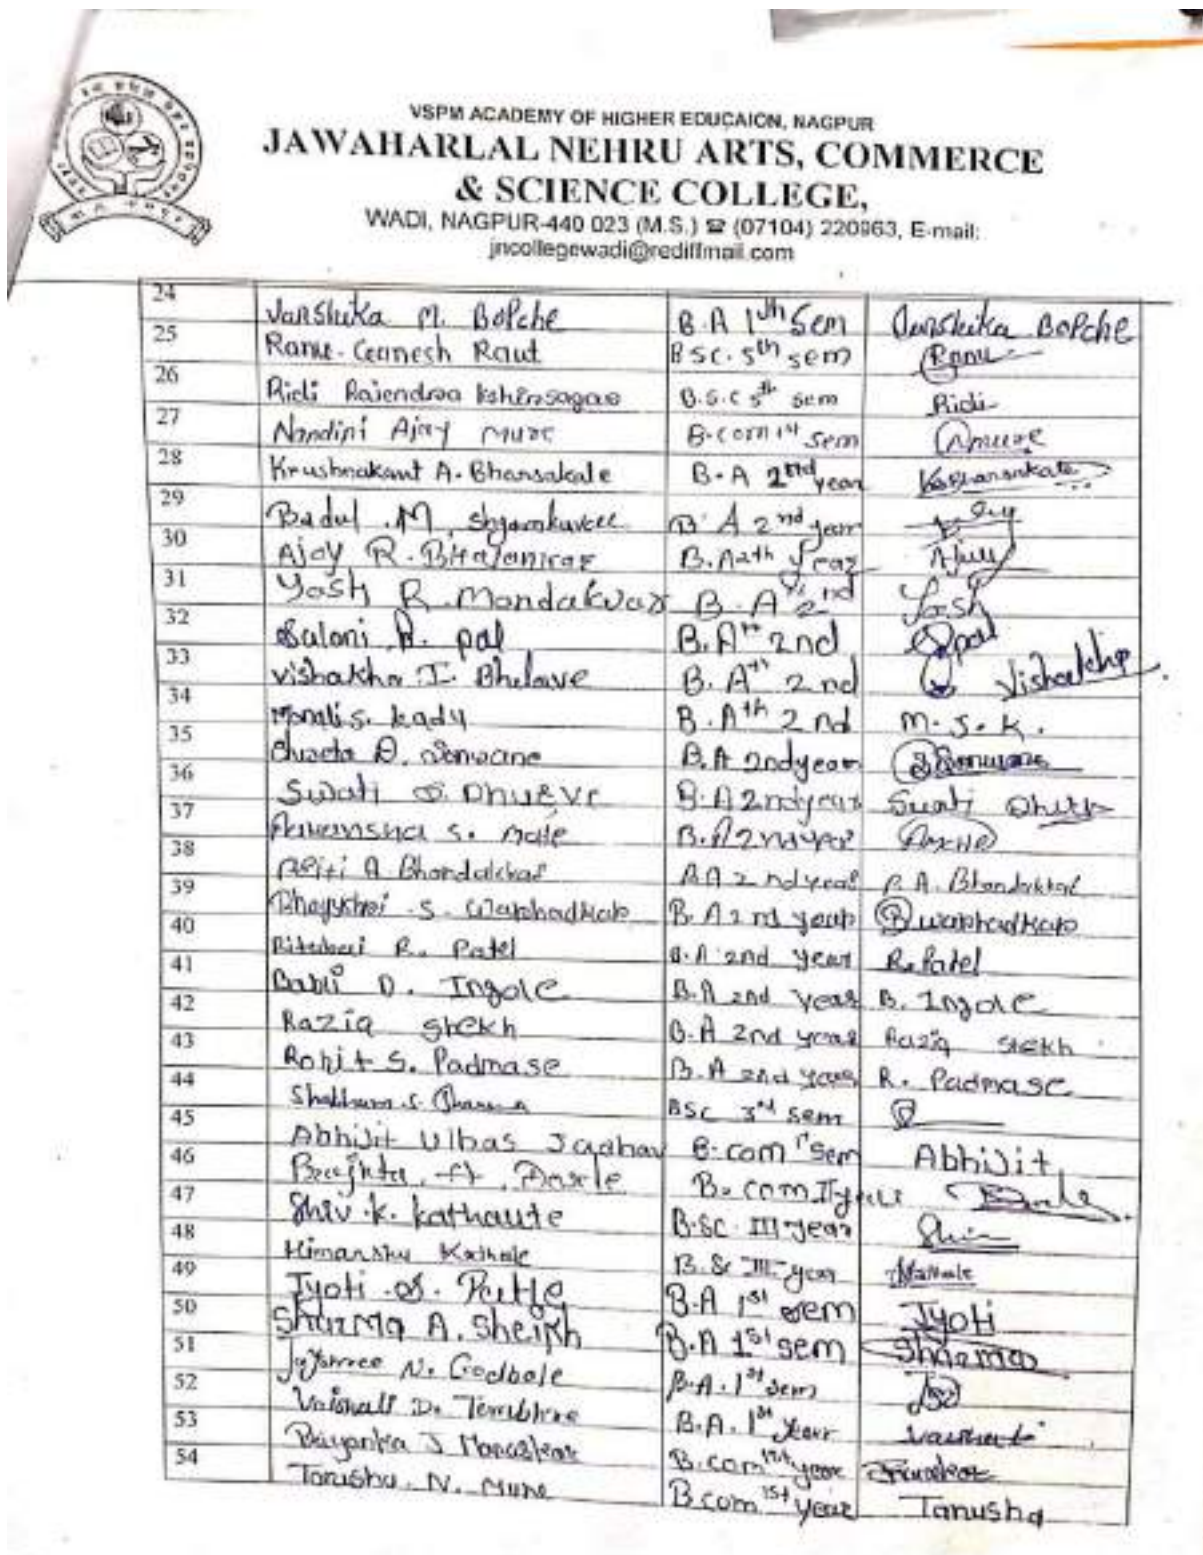 VSPM ACADEMY OF HIGHER EDUCAION, NAGPUR
JAWAHARLAL NEHRU ARTS, COMMERCE
& SCIENCE COLLEGE,
WADI, NAGPUR-440 023 (M.S.) ☎ (07104) 220963, E-mail:
jncollegewadi@rediffmail.com
24 Vanshika M. Bopche B.A 1th Sem Vanshika Bopche
25 Ranu Ganesh Raut BSC. 5th sem Ranu
26 Ridi Rajendraa Kshirsagar B.S.C 5th sem Ridi
27 Nandini Ajay Mure B.com 1st sem
28 Krushnakant A. Bhansakale B.A 2nd year
29 Badul M. B A 2nd year
30 Ajay R. B.A 2th year Ajay
31 Yash R. Mandakvar B.A 2nd Yash
32 Saloni R. pal B.Ath 2nd pal
33 vishakha I. Bhelave B.Ath 2nd
34 Monali S. kadu B.Ath 2nd M.S.K.
35 D. Sonwane B.A 2nd year
36 Swati S. B.A 2nd year Swati
37 S. B.A 2nd year
38 A Bhandakkar BA 2nd year P.A. Bhandakkar
39 S. B.A 2nd year
40 R. Patel B.A 2nd year R. Patel
41 Babli D. Ingole B.A 2nd Year B. Ingole
42 Razia shekh B.A 2nd year Razia shekh
43 Rohit S. Padmase B.A 2nd year R. Padmase
44 Shubham S. Sharma BSC 3rd sem
45 Abhijit Ulhas Jadhav B.com 1st sem Abhijit
46 B.com II year
47 Shiv k. kathaute B.SC III year Shiv
48 Himanshu Kathale B.Sc III year
49 Jyoti S. B.A 1st sem Jyoti
50 Sharma A. Sheikh B.A 1st sem Sharma
51 Jayshree N. Godbole B.A. 1st sem
52 Vaishali D. B.A. 1st year Vaishali
53 J B.com 1st year
54 Tanusha N. Mune B.com 1st year Tanusha